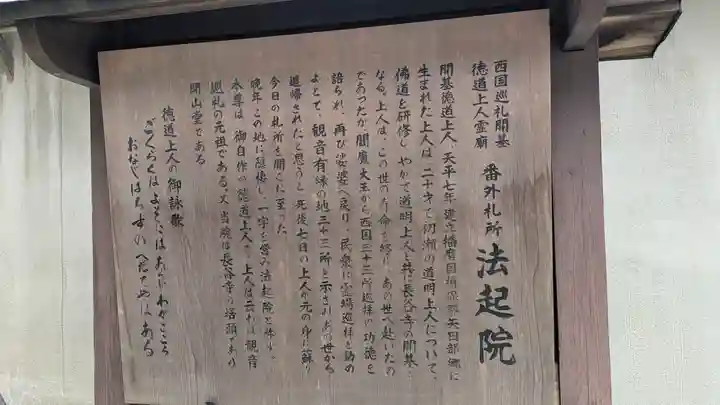 西国巡礼開基
徳道上人霊廟
番外札所 法起院
開基徳道上人、天平七年建立播磨国揖保郡矢田部郷に
生まれた上人は二十才で初瀬の道明上人について、
佛道を研修しやがて道明上人と共に長谷寺の開基と
なる。上人は、この世の寿命を終り、あの世へ赴いたの
であったが閻魔大王から西国三十三所巡拝の功徳を
語られ、再び娑婆へ戻り、民衆に霊場巡拝を詢め
よとて、観音有縁の地三十三所を示されあの世から
還帰されたと思うと死後七日の上人が元の身に蘇り
今日の札所を開くに至った。
晩年この地に隠棲し一宇を営み法起院と称す。
本尊は、御自作の徳道上人で、上人は云わば観音
巡礼の元祖である。又当院は長谷寺の塔頭であり
開山堂である
徳道上人の御詠歌
ごくらくはよそにはあらじわがこころ
おなじはちすのへだてやはある